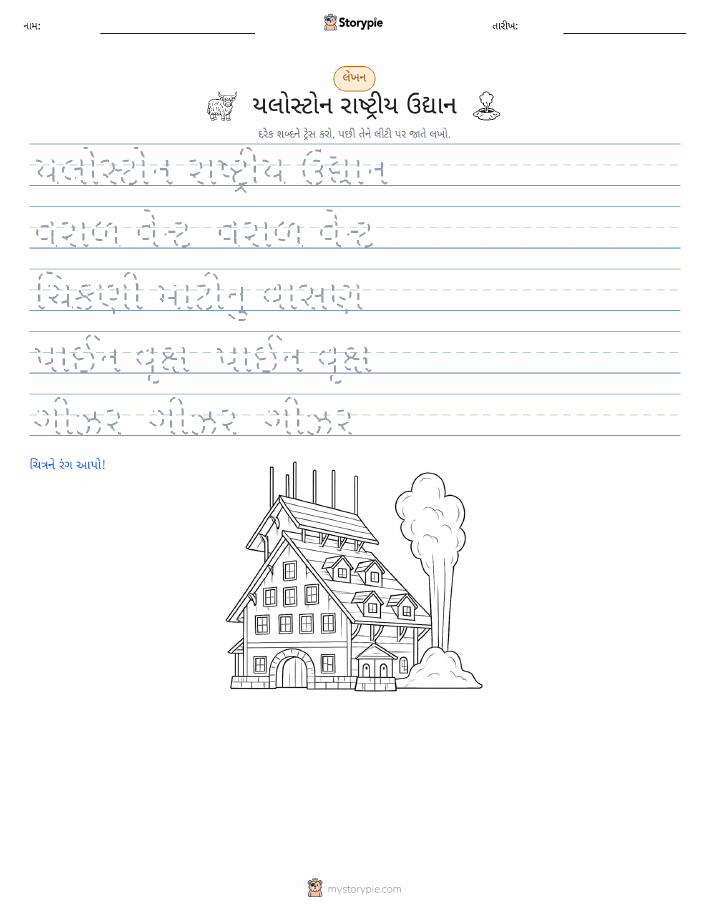 નામ:
Storypie
તારીખ:
લેખન
યલોસ્ટોન રાષ્ટ્રીય ઉદ્યાન
દરેક શબ્દને ટ્રેસ કરો, પછી તેને લીટી પર જાતે લખો.
યલોસ્ટોન રાષ્ટ્રીય ઉદ્યાન
વરાળ વેન્ટ વરાળ વેન્ટ
ચિકણી માટીનુ વાસણ
પાઈન વૃક્ષ પાઈન વૃક્ષ
ગીઝર ગીઝર ગીઝર
ચિત્રને રંગ આપો!
mystorypie.com